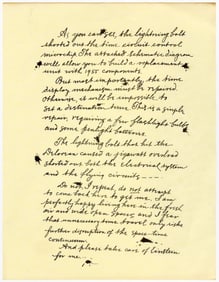 As you can see, the lightning bolt
shorted out the time circuit control
microchip. The attached schematic diagram
will allow you to build a replacement
unit with 1955 components.
But most importantly, the time
display mechanism must be repaired.
Otherwise, it will be impossible to
set a destination time. This is a simple
repair, requiring a few flashlight bulbs
and some penlight batteries.
The lightning bolt that hit the
Delorean caused a gigawatt overload
shorted out both the electrical system
and the flying circuits
Do not, I repeat, do not attempt
to come back here to get me. I am
perfectly happy living here in the fresh
air and wide open spaces, and I fear
that unnecessary time travel only risks
further disruption of the space-time
continuum.
And please take care of Einstein
for me.